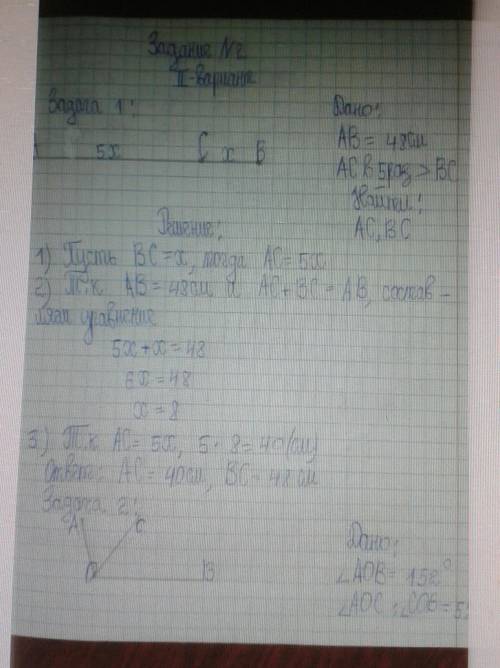 Задание №2
II-вариант
Задача 1:
Дано:
AB = 48см
AC в 5раз > BC
Найти:
AC, BC
A 5x C x B
Решение:
1) Пусть BC = x, тогда AC = 5x
2) Т.к AB = 48см и AC + BC = AB, состав-
ляем уравнение
5x + x = 48
6x = 48
x = 8
3) Т.к AC = 5x, 5 · 8 = 40(см)
Ответ: AC = 40см, BC = 48 см
Задача 2:
A C
O B
Дано:
∠AOB =
∠AOC : ∠COB =